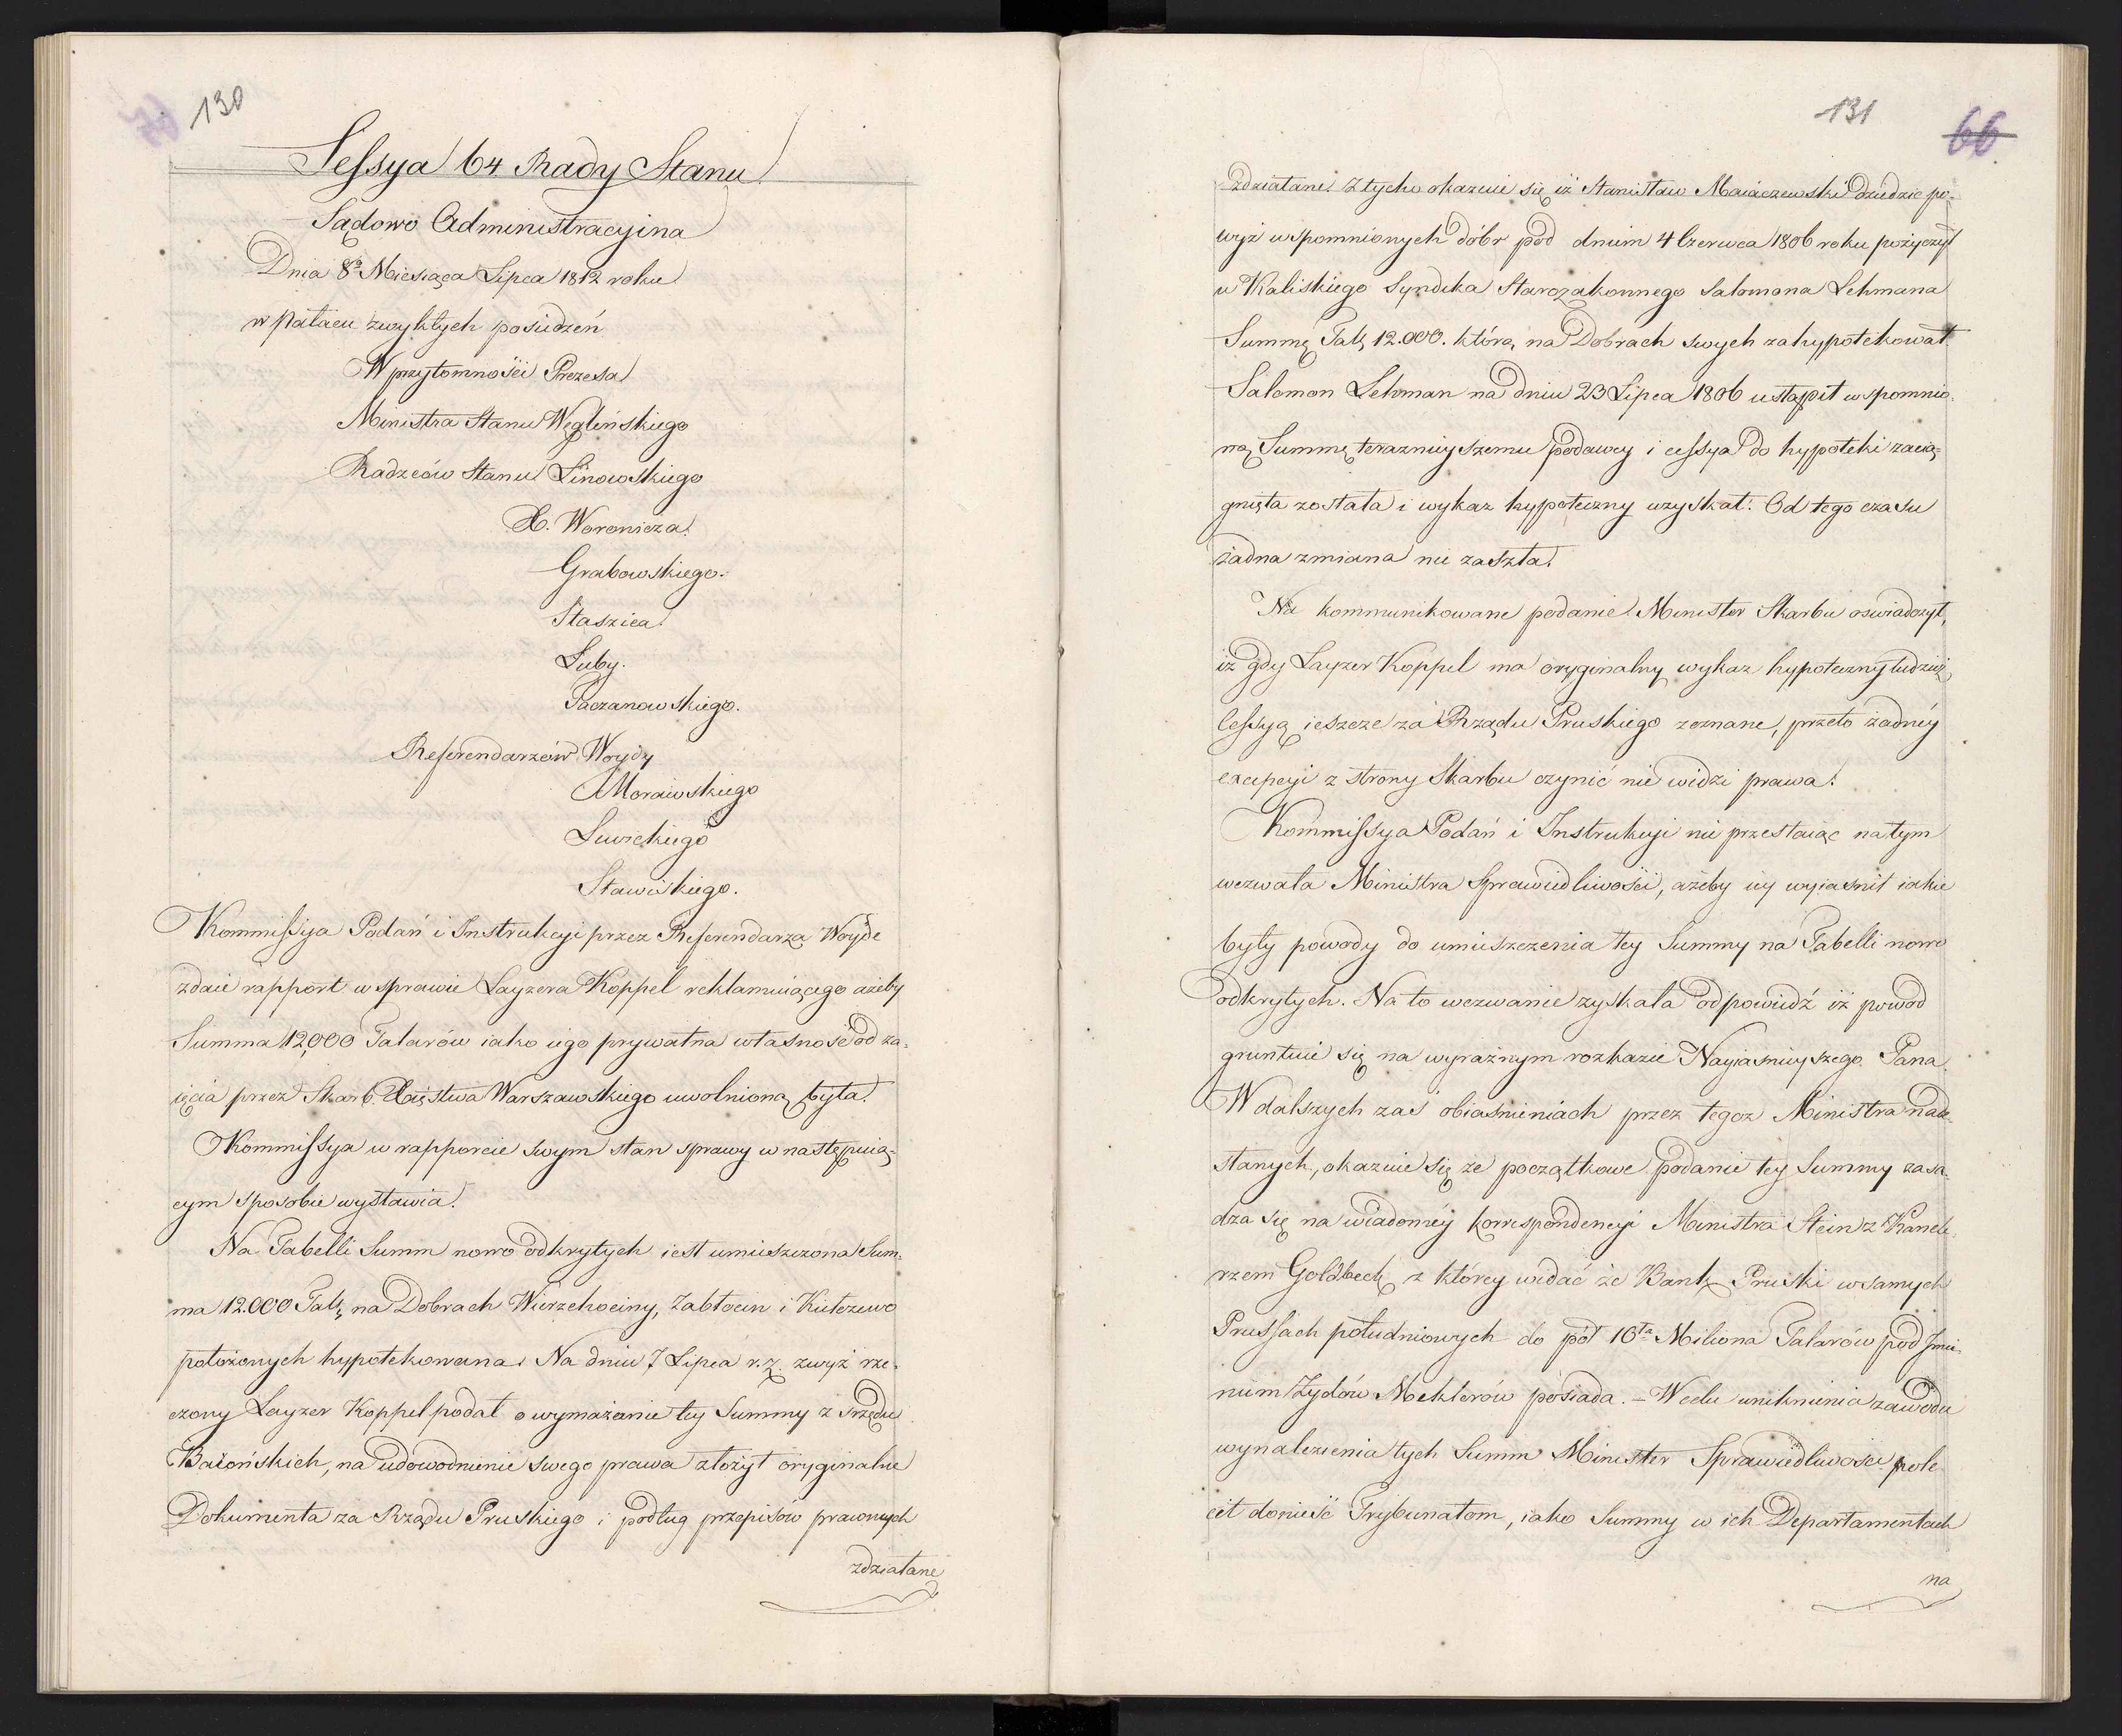 130
Sessya 64 Rady Stanu
Sądowo Administracyina
Dnia 8º Miesiąca Lipca 1812 roku
w Pałacu zwykłych posiedzeń
W przytomności Prezesa
Ministra Stanu Węgleńskiego
Radzców Stanu Linowskiego
X. Woronicza
Grabowskiego.
Staszica
Luby.
Paczanowskiego.
Referendarzów Woydy
Morawskiego
Lewickiego
Stawiskiego.
Kommissya Podań i Instrukcyi przez Referendarza Woyde
zdaie rapport w sprawie Layzera Koppel reklamuiącego ażeby
Summa 12,000 Talarów iako iego prywatna własność od za-
ięcia przez Skarb Xięstwa Warszawskiego uwolnioną była.
Kommissya w rapporcie swym stan sprawy w następuią-
cym sposobie wystawia.
Na Tabelli Summ nowo odkrytych iest umieszczona Sum-
ma 12.000 Tal. na Dobrach Wierzchociny, Zabłocin i Kiełczewo
położonych hypotekowana. Na dniu 7 Lipca r. z. zwyż rze-
czony Layzer Koppel podał o wymazanie tey Summy z rzędu
Baiońskich, na udowodnienie swego prawa złożył oryginalne
Dokumenta za Rządu Pruskiego i podług przepisów prawnych
zdziałane
131
66
zdziałane. Z tych okazuie się iż Stanisław Maiaczewski dziedzic po-
wyż wspomnionych dóbr pod dniem 4 Czerwca 1806 roku pożyczył
u Kaliskiego Syndika Starozakonnego Salomona Lehmana
Summę Tal. 12.000. którą na Dobrach swych zahypotekował.
Salomon Lehman na dniu 23 Lipca 1806 ustąpił wspomnio-
ną Summę teraznieyszemu podawcy i cessya do hypoteki zacią-
gnięta została i wykaz hypoteczny uzyskał. Od tego czasu
żadna zmiana nie zaszła.
Na kommunikowane podanie Minister Skarbu oswiadczył,
iż gdy Layzer Koppel ma oryginalny wykaz hypoteczny tudzież
Cessyą ieszcze za Rządu Pruskiego zeznane, przeto żadnéy
excepcyi z strony Skarbu czynić nie widzi prawa.
Kommissya Podań i Instrukcyi nie przestaiąc na tym
wezwała Ministra Sprawiedliwości, ażeby iey wyiasnił iakie
były powody do umieszczenia tey Summy na Tabelli nowo
odkrytych. Na to wezwanie zyskała odpowiedź iż powod
gruntuie się na wyraźnym rozkazie Nayiasnieyszego Pana.
W dalszych zaś obiasnieniach przez tegoz Ministra nade-
słanych, okazuie się że początkowe podanie tey Summy zasa-
dza się na wiadoméy korrespondencyi Ministra Stein z Kancle-
rzem Goldbeck z którey widać że Bank Pruski w samych
Prussach południowych do pół 10ta Miliona Talarów pod Jmie-
niem Żydów Meklerów posiada. – W celu uniknienia zawodu
wynalezienia tych Summ Minister Sprawiedliwości pole-
cił donieść Trybunałom, iako Summy w ich Departamentach
na